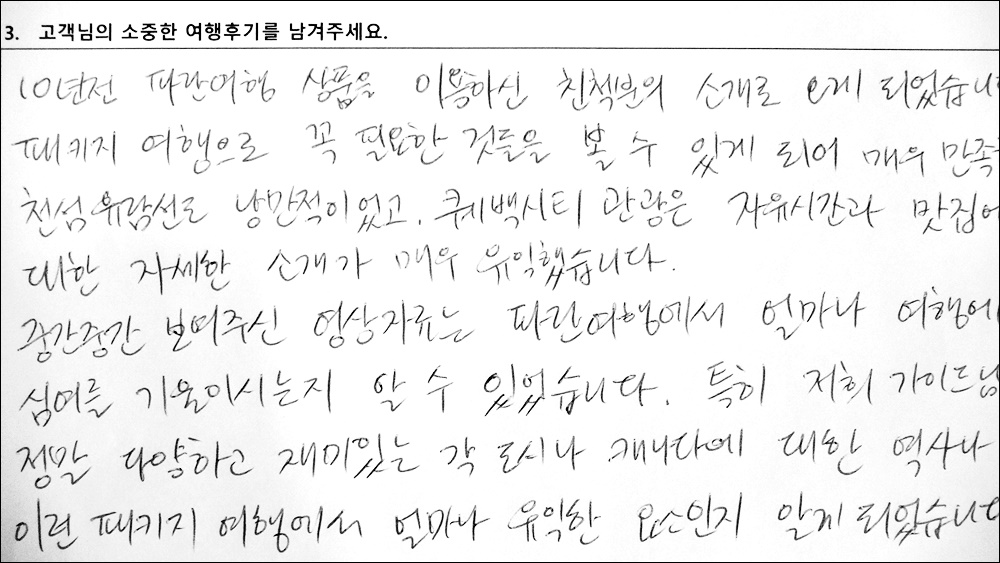 3. 고객님의 소중한 여행후기를 남겨주세요.
10년전 파란여행 상품을 이용하신 친척분의 소개로 오게 되었습니
패키지 여행으로 꼭 필요한 것들을 볼 수 있게 되어 매우 만족
천섬유람선도 낭만적이었고. 퀘백시티 관광은 자유시간과 맛집에
대한 자세한 소개가 매우 유익했습니다.
중간중간 보여주신 영상자료는 파란여행에서 얼마나 여행에
심여를 기울이시는지 알 수 있었습니다. 특히 저희 가이드님
정말 다양하고 재미있는 각 도시나 캐나다에 대한 역사나
이런 패키지 여행에서 얼마나 유익한 요소인지 알게 되었습니다